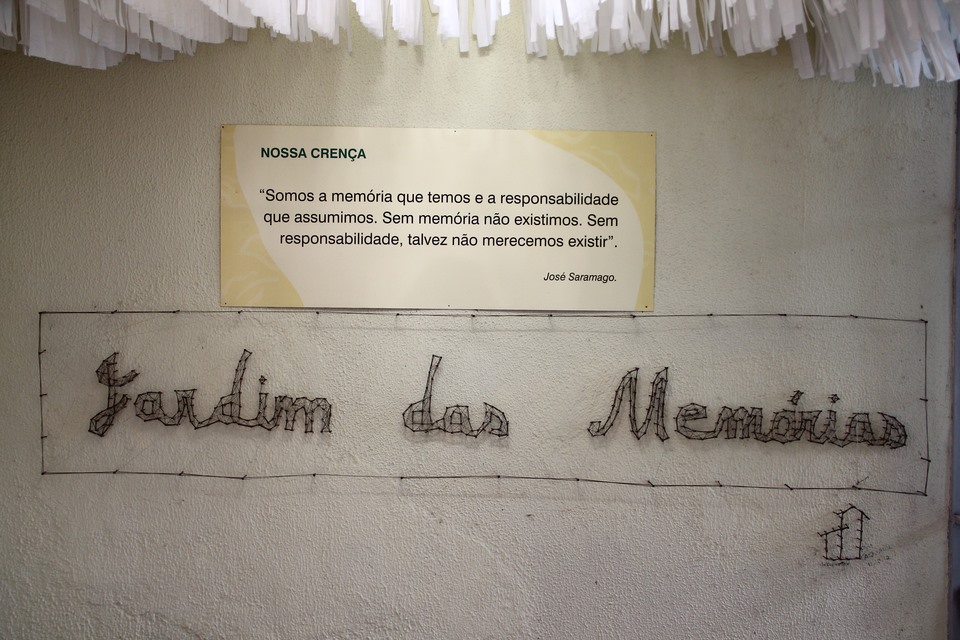 NOSSA CRENÇA
“Somos a memória que temos e a responsabilidade
que assumimos. Sem memória não existimos. Sem
responsabilidade, talvez não merecemos existir”.
José Saramago.
Jardim das Memórias